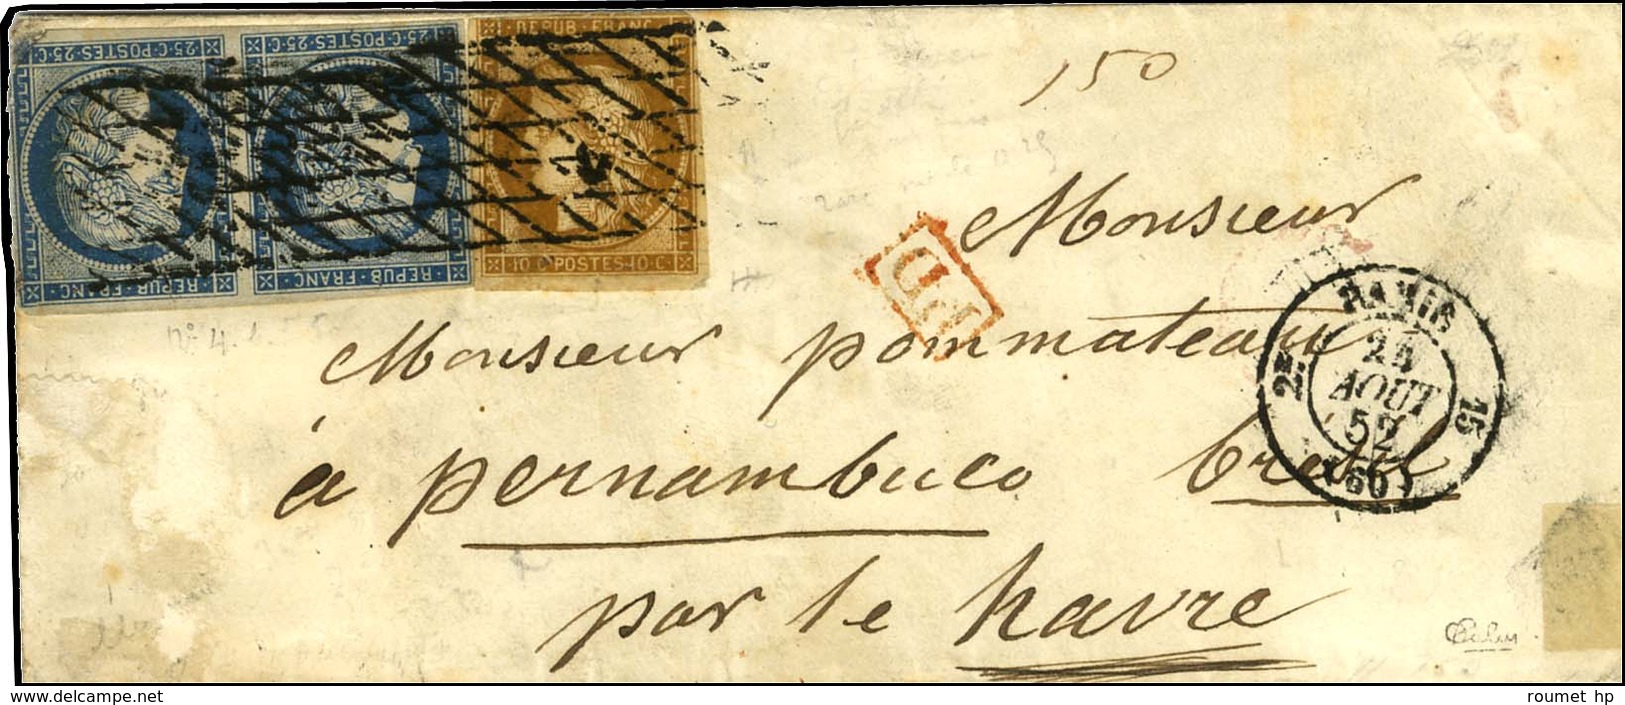 25·C·POSTES·25·C
25·C·POSTES·25·C
REPUB·FRANC·
REPUB·FRANC·
REPUB·FRANC·
10·C·POSTES·10·C·
150
P.D.
Monsieur
Monsieur pommateau
à pernambuco bresil
par le havre
PARIS
2E
24
AOUT
52
15
(60)
N° 4
Calves
www.delcampe.net
roumet hp